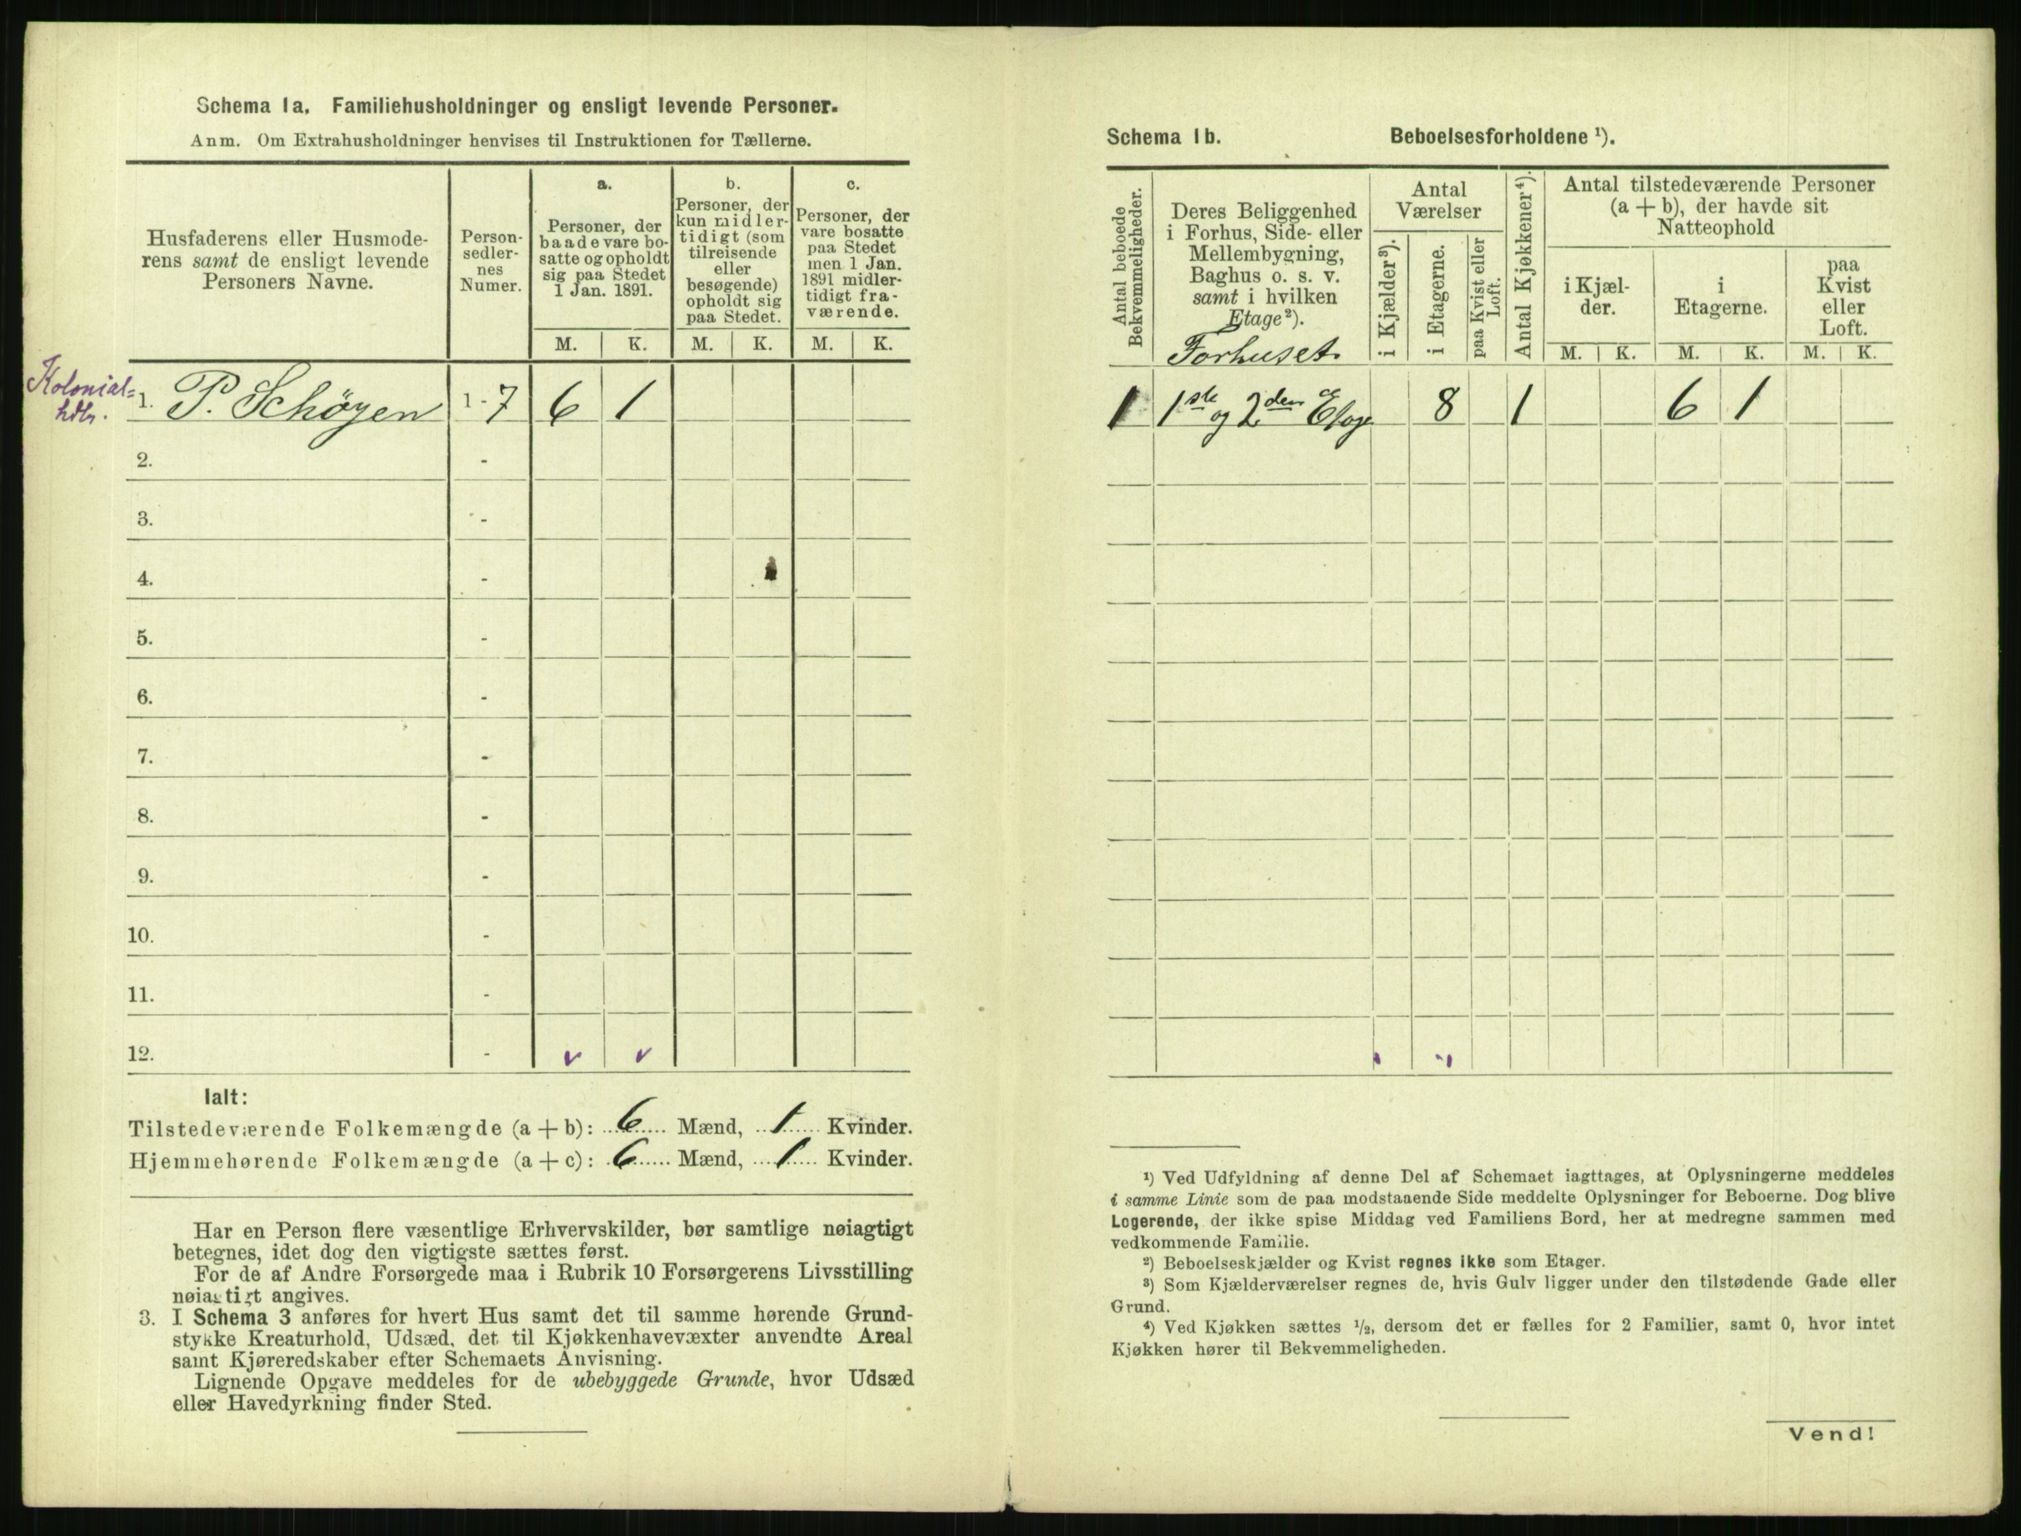 Schema 1a. Familiehusholdninger og ensligt levende Personer.
Anm. Om Extrahusholdninger henvises til Instruktionen for Tællerne.
Husfaderens eller Husmode-
rens samt de ensligt levende
Personers Navne.
Person-
sedler-
nes
Numer.
a.
Personer, der
baade vare bo-
satte og opholdt
sig paa Stedet
1 Jan. 1891.
b.
Personer, der
kun midler-
tidigt (som
tilreisende
eller
besøgende)
opholdt sig
paa Stedet.
c.
Personer, der
vare bosatte
paa Stedet
men 1 Jan.
1891 midler-
tidigt fra-
værende.
M. K. M. K. M. K.
Kolonial=
hdlr.
1. P. Schøyen 1-7 6 1
2. -
3. -
4. -
5. -
6. -
7. -
8. -
9. -
10. -
11. -
12. -
Ialt:
Tilstedeværende Folkemængde (a + b): 6 Mænd, 1 Kvinder.
Hjemmehørende Folkemængde (a + c): 6 Mænd, 1 Kvinder.
Har en Person flere væsentlige Erhvervskilder, bør samtlige nøiagtigt
betegnes, idet dog den vigtigste sættes først.
For de af Andre Forsørgede maa i Rubrik 10 Forsørgerens Livsstilling
nøiagtigt angives.
3. I Schema 3 anføres for hvert Hus samt det til samme hørende Grund-
stykke Kreaturhold, Udsæd, det til Kjøkkenhavevæxter anvendte Areal
samt Kjøreredskaber efter Schemaets Anvisning.
Lignende Opgave meddeles for de ubebyggede Grunde, hvor Udsæd
eller Havedyrkning finder Sted.
Schema 1b. Beboelsesforholdene ¹).
Antal beboede
Bekvemmeligheder.
Deres Beliggenhed
i Forhus, Side- eller
Mellembygning,
Baghus o. s. v.
samt i hvilken
Etage²).
Forhuset.
Antal
Værelser
i Kjælder³).
i Etagerne.
paa Kvist eller
Loft.
Antal Kjøkkener⁴).
Antal tilstedeværende Personer
(a + b), der havde sit
Natteophold
i Kjæl-
der.
i
Etagerne.
paa
Kvist
eller
Loft.
M. K. M. K. M. K.
1 1ste og 2den Etage 8 1 6 1
¹) Ved Udfyldning af denne Del af Schemaet iagttages, at Oplysningerne meddeles
i samme Linie som de paa modstaaende Side meddelte Oplysninger for Beboerne. Dog blive
Logerende, der ikke spise Middag ved Familiens Bord, her at medregne sammen med
vedkommende Familie.
²) Beboelseskjælder og Kvist regnes ikke som Etager.
³) Som Kjælderværelser regnes de, hvis Gulv ligger under den tilstødende Gade eller
Grund.
⁴) Ved Kjøkken sættes ½, dersom det er fælles for 2 Familier, samt 0, hvor intet
Kjøkken hører til Bekvemmeligheden.
Vend!